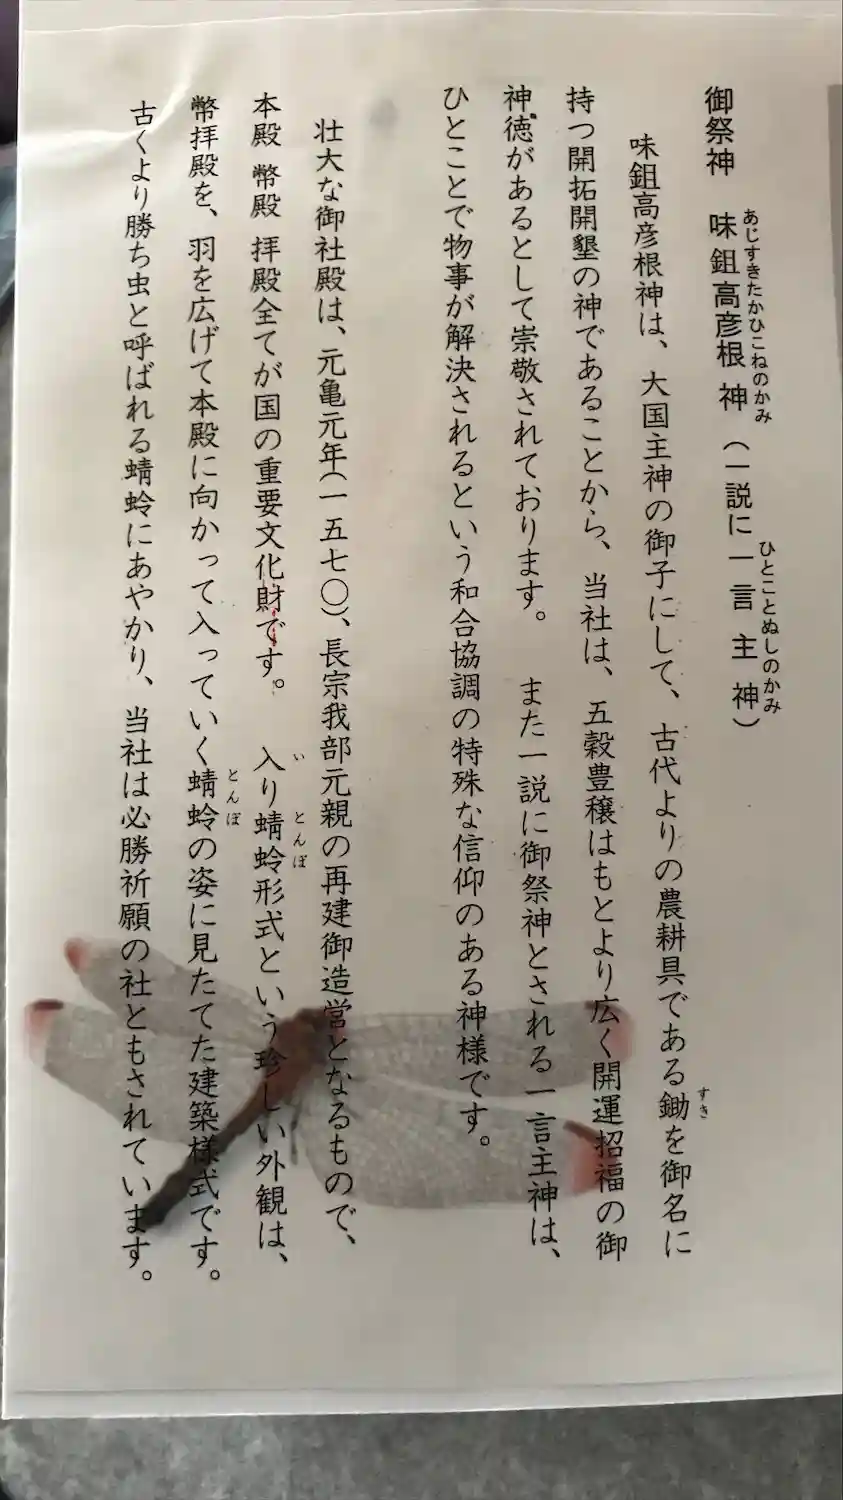 御祭神　味鉏高彦根神（一説に一言主神）
あじすきたかひこねのかみ
ひとことぬしのかみ
味鉏高彦根神は、大国主神の御子にして、古代よりの農耕具である鋤を御名に
すき
持つ開拓開墾の神であることから、当社は、五穀豊穣はもとより広く開運招福の御
神徳があるとして崇敬されております。　また一説に御祭神とされる一言主神は、
ひとことで物事が解決されるという和合協調の特殊な信仰のある神様です。
壮大な御社殿は、元亀元年（一五七〇）、長宗我部元親の再建御造営となるもので、
本殿 幣殿 拝殿全てが国の重要文化財です。　入り蜻蛉形式という珍しい外観は、
い
とんぼ
幣拝殿を、羽を広げて本殿に向かって入っていく蜻蛉の姿に見たてた建築様式です。
とんぼ
古くより勝ち虫と呼ばれる蜻蛉にあやかり、当社は必勝祈願の社ともされています。